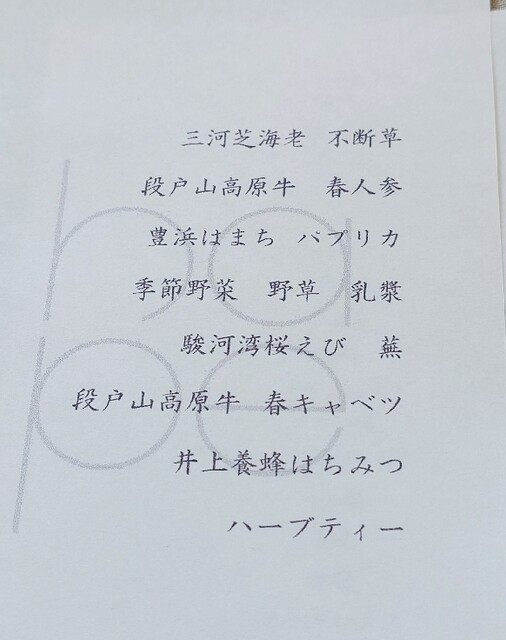 三河芝海老　不断草
段戸山高原牛　春人参
豊浜はまち　パプリカ
季節野菜　野草　乳漿
駿河湾桜えび　蕪
段戸山高原牛　春キャベツ
井上養蜂はちみつ
ハーブティー
ha
pe